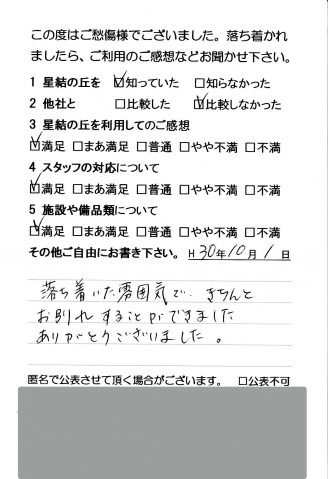 この度はご愁傷様でございました。落ち着かれ
ましたら、ご利用のご感想などお聞かせ下さい。
1 星結の丘を ☑知っていた □知らなかった
2 他社と □比較した ☑比較しなかった
3 星結の丘を利用してのご感想
☑満足 □まあ満足 □普通 □やや不満 □不満
4 スタッフの対応について
☑満足 □まあ満足 □普通 □やや不満 □不満
5 施設や備品類について
☑満足 □まあ満足 □普通 □やや不満 □不満
その他ご自由にお書き下さい。 H 30年10月1日
落ち着いた雰囲気で、きちんと
お別れすることができました
ありがとうございました。
匿名で公表させて頂く場合がございます。 □公表不可